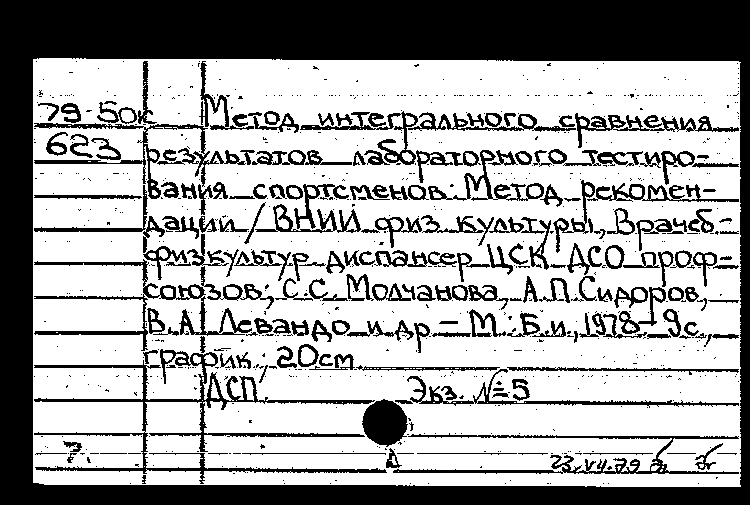 79-50к Метод интегрального сравнения
623 результатов лабораторного тестиро-
вания спортсменов: Метод. рекомен-
дации / ВНИИ физ. культуры, Врачеб.-
физкультур. диспансер ЦСК ДСО проф-
союзов; С.С. Молчанова, А.П. Сидоров,
В.А. Левандо и др. — М.: Б.и., 1978. — 9 с.,
график.; 20 см
ДСП. Экз. № 5
7. Д 23.VII.79